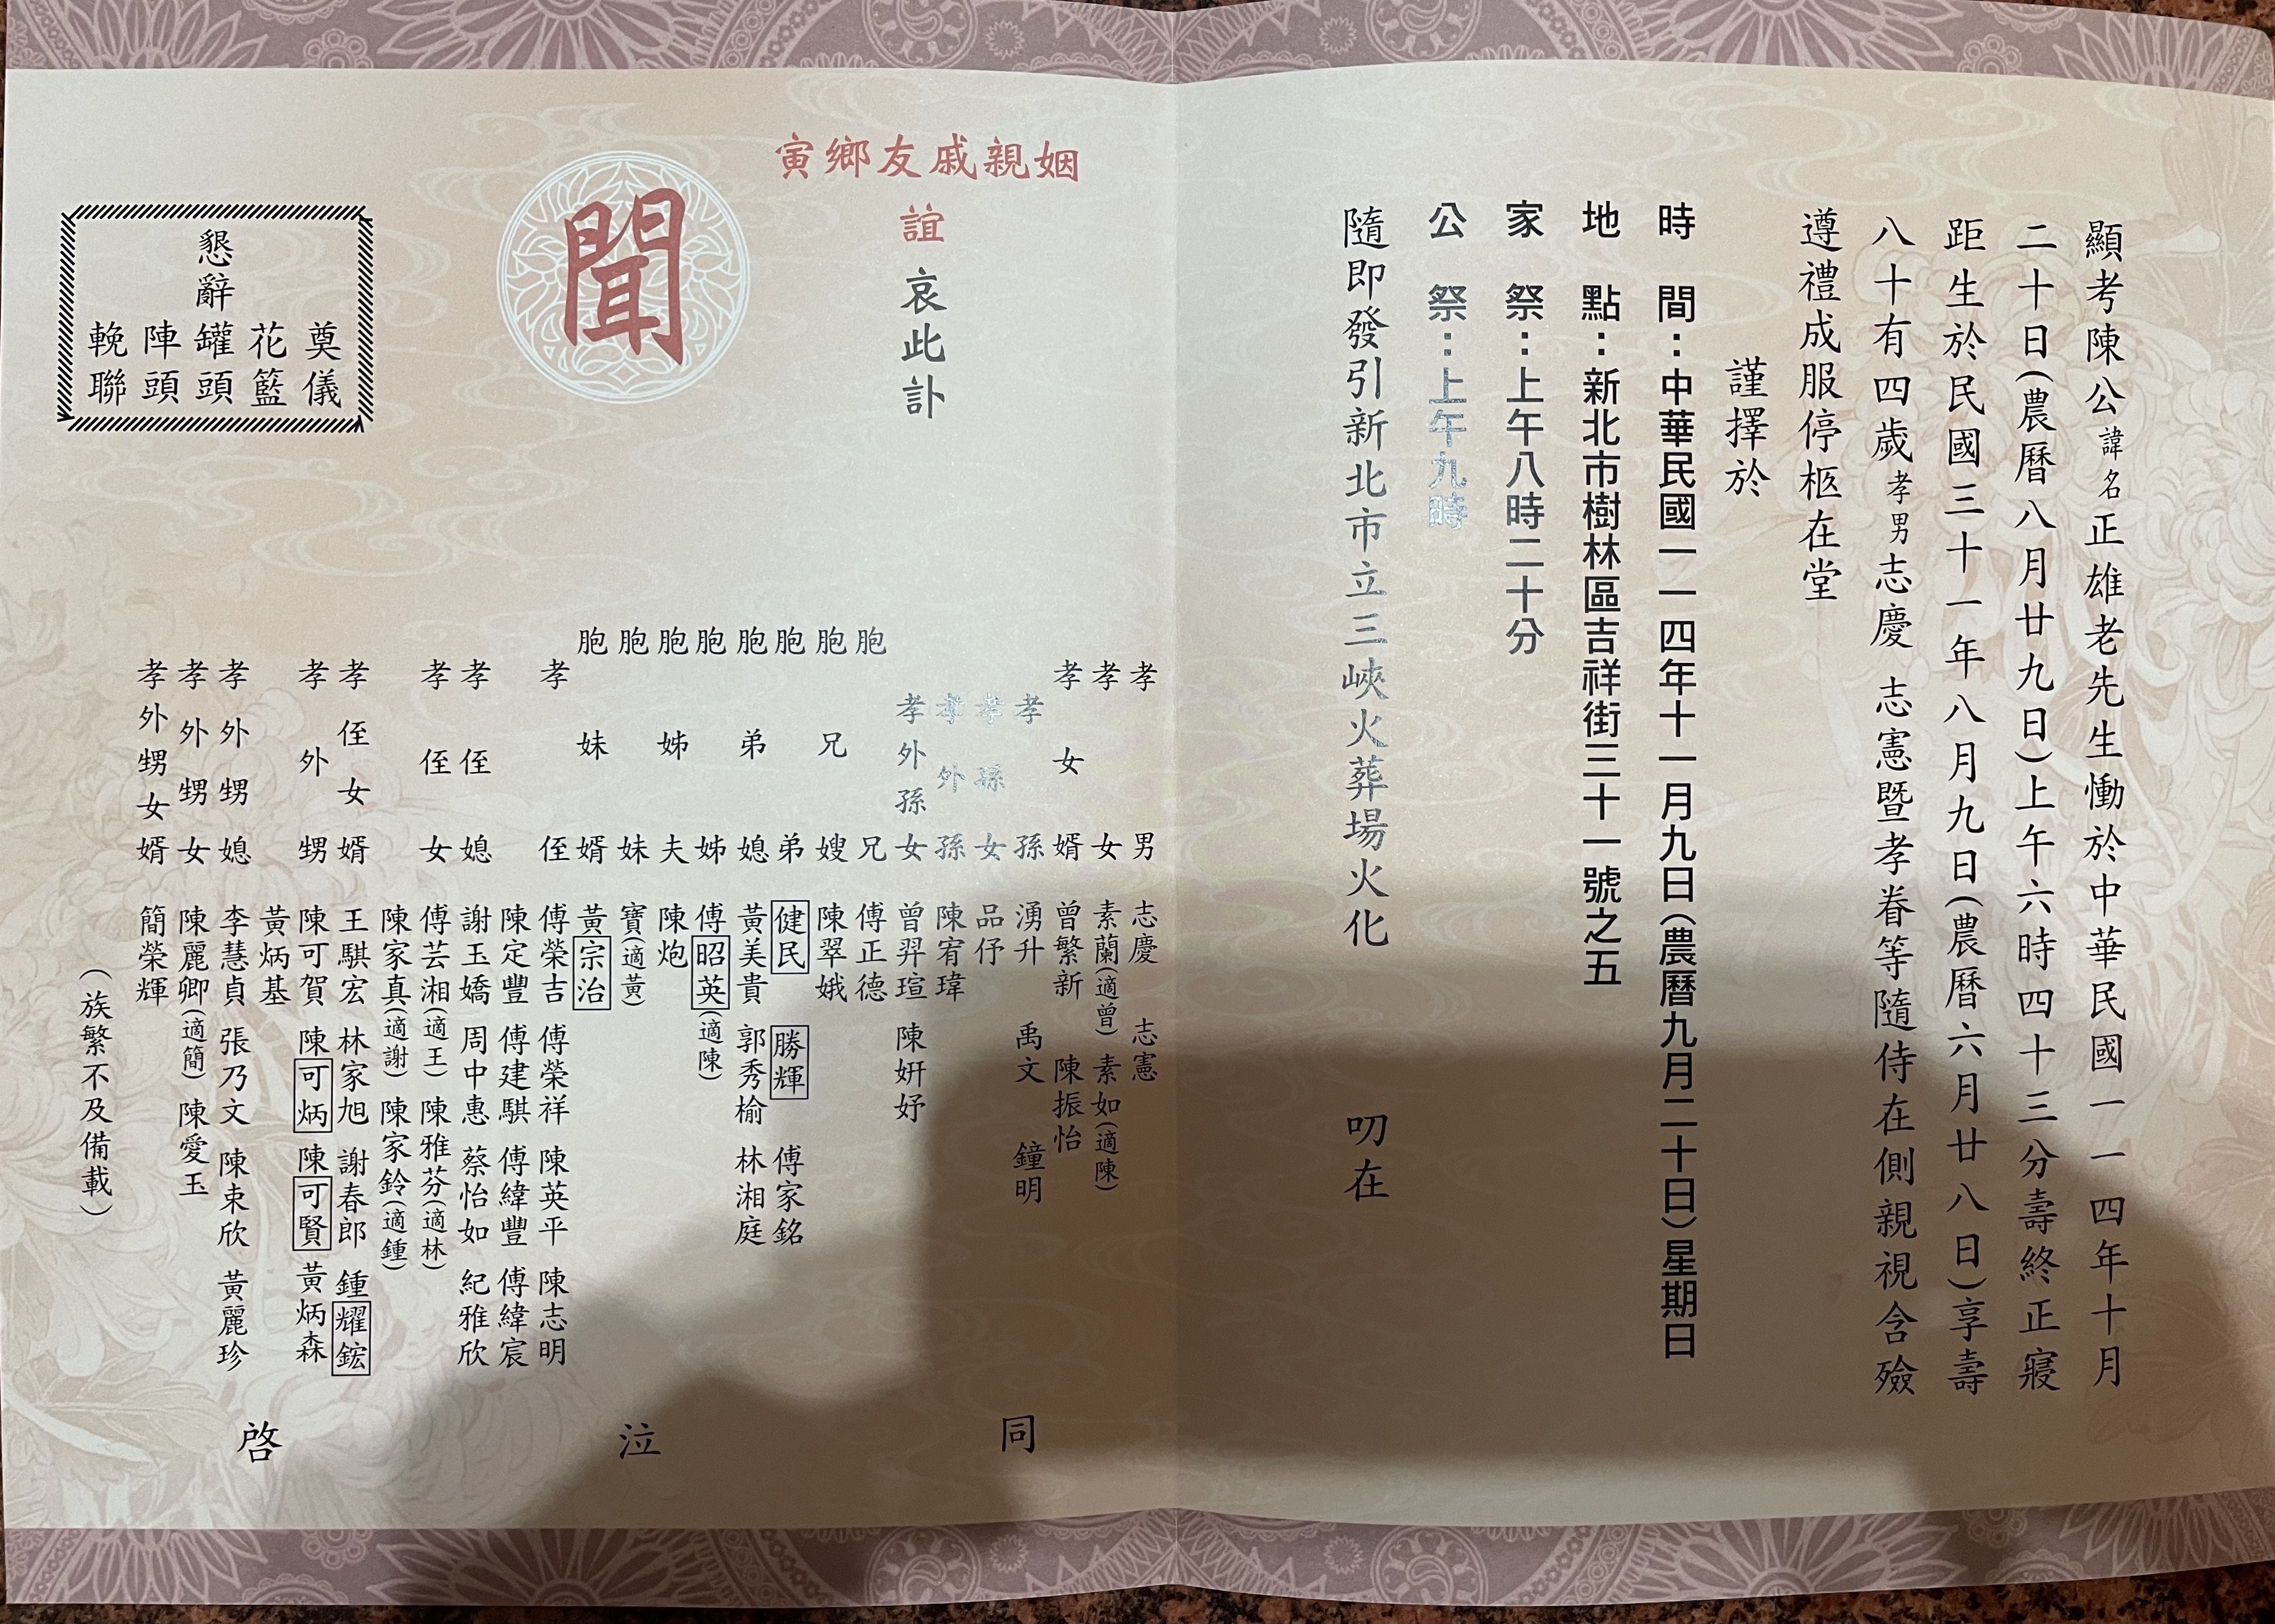 顯考陳公諱名正雄老先生慟於中華民國一一四年十月
二十日(農曆八月廿九日)上午六時四十三分壽終正寢
距生於民國三十一年八月九日(農曆六月廿八日)享壽
八十有四歲孝男志慶 志憲暨孝眷等隨侍在側親視含殮
遵禮成服停柩在堂
謹擇於
時間:中華民國一一四年十一月九日(農曆九月二十日)星期日
地點:新北市樹林區吉祥街三十一號之五
家祭:上午八時二十分
公祭:上午九時
隨即發引新北市立三峽火葬場火化 叨在
姻親戚友鄉寅
誼 哀此訃
聞
懇辭
奠儀
花籃
罐頭
陣頭
輓聯
孝男 志慶 志憲
孝女 素蘭(適曾) 素如(適陳)
孝女婿 曾繁新 陳振怡
孝孫 湧升 禹文 鐘明
孝孫女 品伃
孝外孫 陳宥瑋
孝外孫女 曾羿瑄 陳姸妤
胞兄 傅正德
胞兄嫂 陳翠娥
胞弟 健民 勝輝 傅家銘
胞弟媳 黃美貴 郭秀榆 林湘庭
胞姊 傅昭英(適陳)
胞姊夫 陳炮
胞妹 寶(適黃)
胞妹婿 黃宗治
孝侄 傅榮吉 傅榮祥 陳英平 陳志明
陳定豐 傅建騏 傅緯豐 傅緯宸
孝侄媳 謝玉嬌 周中惠 蔡怡如 紀雅欣
孝侄女 傅芸湘(適王) 陳雅芬(適林)
陳家真(適謝) 陳家鈴(適鍾)
孝侄女婿 王騏宏 林家旭 謝春郎 鍾耀鋐
孝外甥 陳可賀 陳可炳 陳可賢 黃炳森
黃炳基
孝外甥媳 李慧貞 張乃文 陳束欣 黃麗珍
孝外甥女 陳麗卿(適簡) 陳愛玉
孝外甥女婿 簡榮輝
(族繁不及備載)
同泣啓